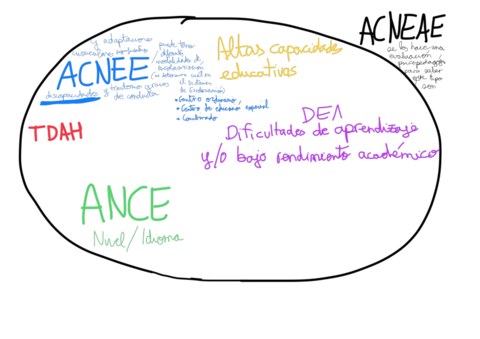 ACNEAE
se les hace una
evaluación
psicopedagógica
para saber
de este tipo
son
y adaptaciones
curriculares
ACNEE
discapacidades y trastornos graves
de conducta
puede tener
diferentes
modalidades de
escolarización
el Dictamen
de Escolarización)
• Centro ordinario
• Centro de educación especial
• Combinado
Altas capacidades
educativas
DEA
Dificultades de aprendizaje
y/o bajo rendimiento académico
TDAH
ANCE
Nivel/Idioma